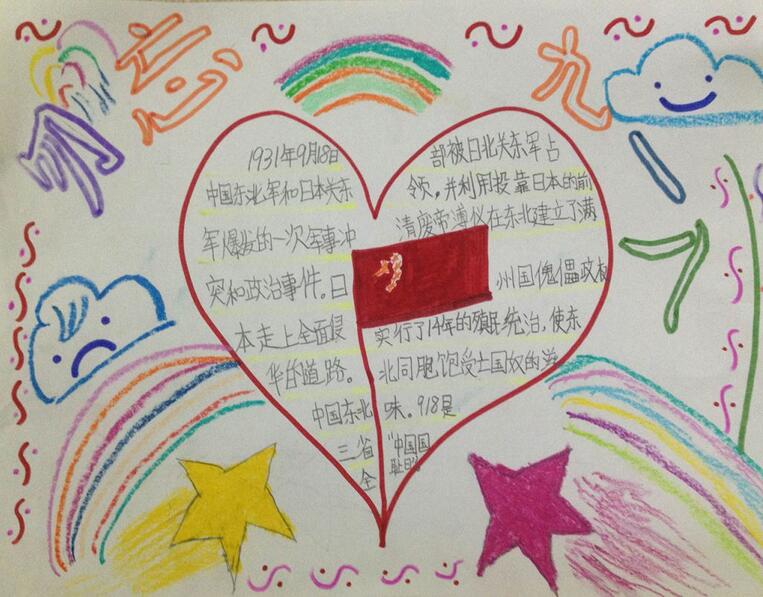 勿忘
九一八
1931年9月18日
中国东北军和日本关东
军爆发的一次军事冲
突和政治事件。日
本走上全面侵
华的道路。
中国东北
三省
全
部被日北关东军占
领，并利用投靠日本的前
清废帝溥仪在东北建立了满
州国傀儡政权
实行了14年的殖民统治，使东
北同胞饱受亡国奴的滋
味。918是
“中国国
耻日”